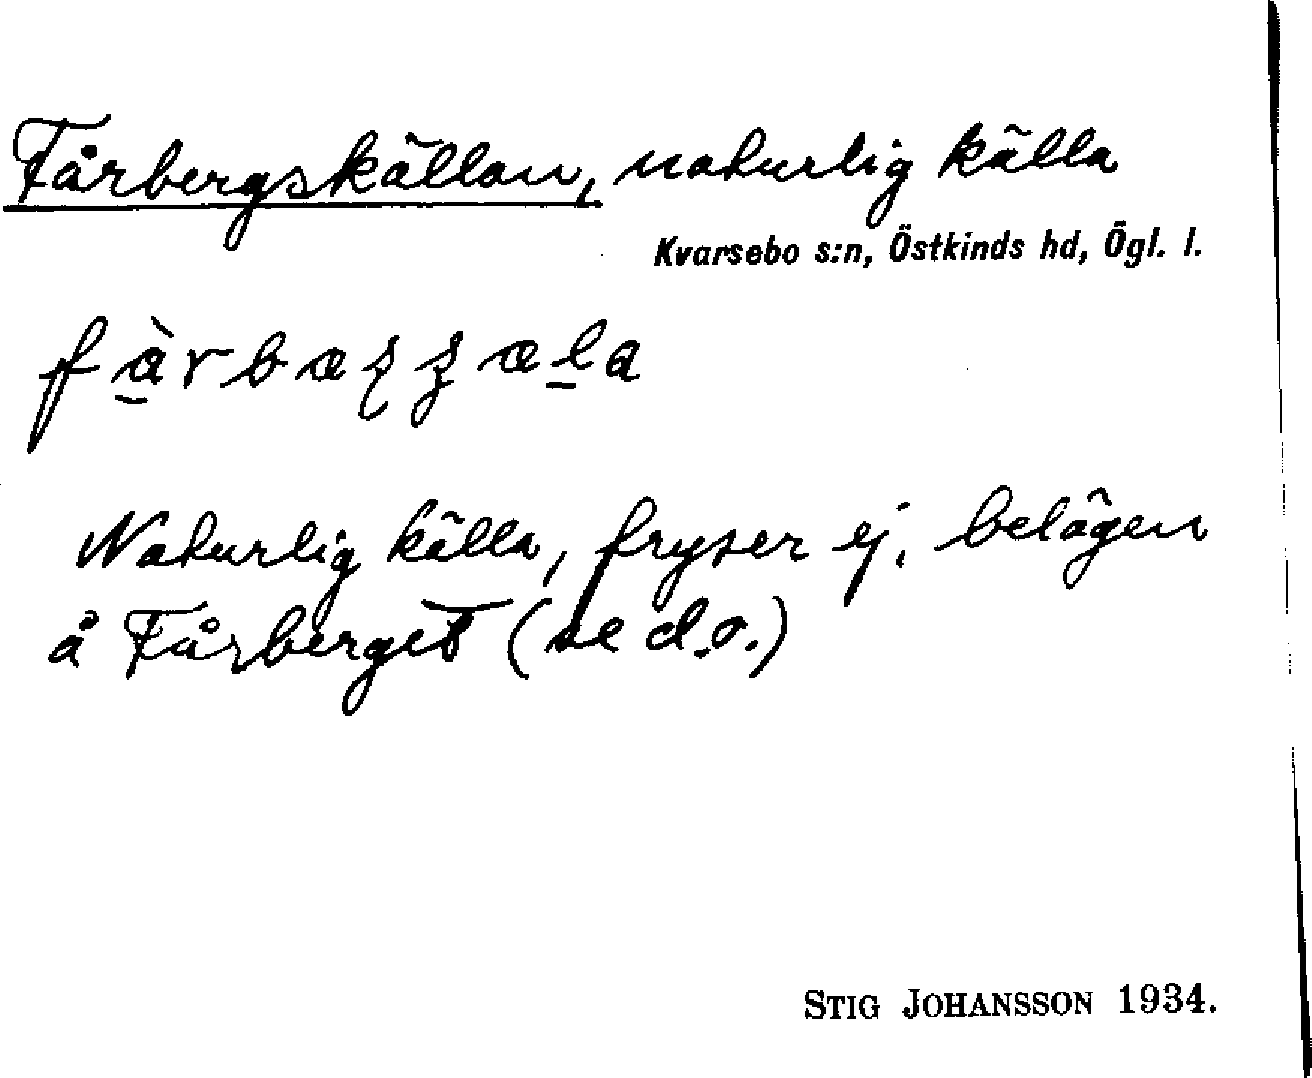 Fårbergskällan, naturlig källa
Kvarsebo s:n, Östkinds hd, Ögl. l.
Naturlig källa, fryser ej, belägen
å Fårberget (se d.o.)
STIG JOHANSSON 1934.